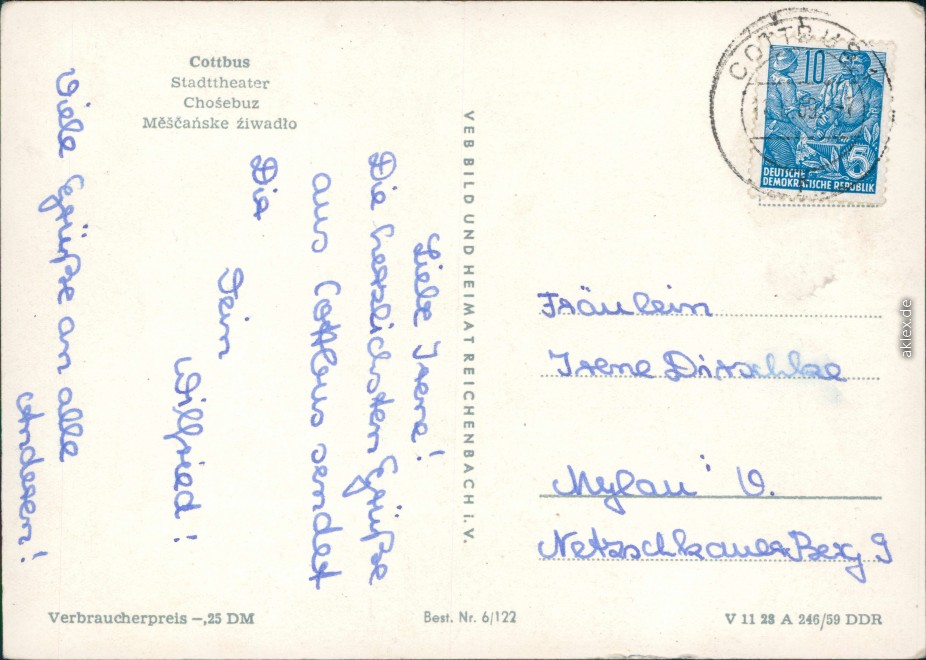 Cottbus
Stadttheater
Chośebuz
Měšćańske źiwadło
Liebe Irene!
Die herzlichsten Grüße
aus Cottbus sendet
Dir
Dein
Wilfried!
Viele Grüße an alle
Anderen!
VEB BILD UND HEIMAT REICHENBACH i. V.
COTTBUS
10
5
DEUTSCHE
DEMOKRATISCHE REPUBLIK
Fräulein
Irene Dirschke
Mylau V.
Netzschkauer Berg 9
Verbraucherpreis –,25 DM
Best. Nr. 6/122
V 11 28 A 246/59 DDR
aklex.de